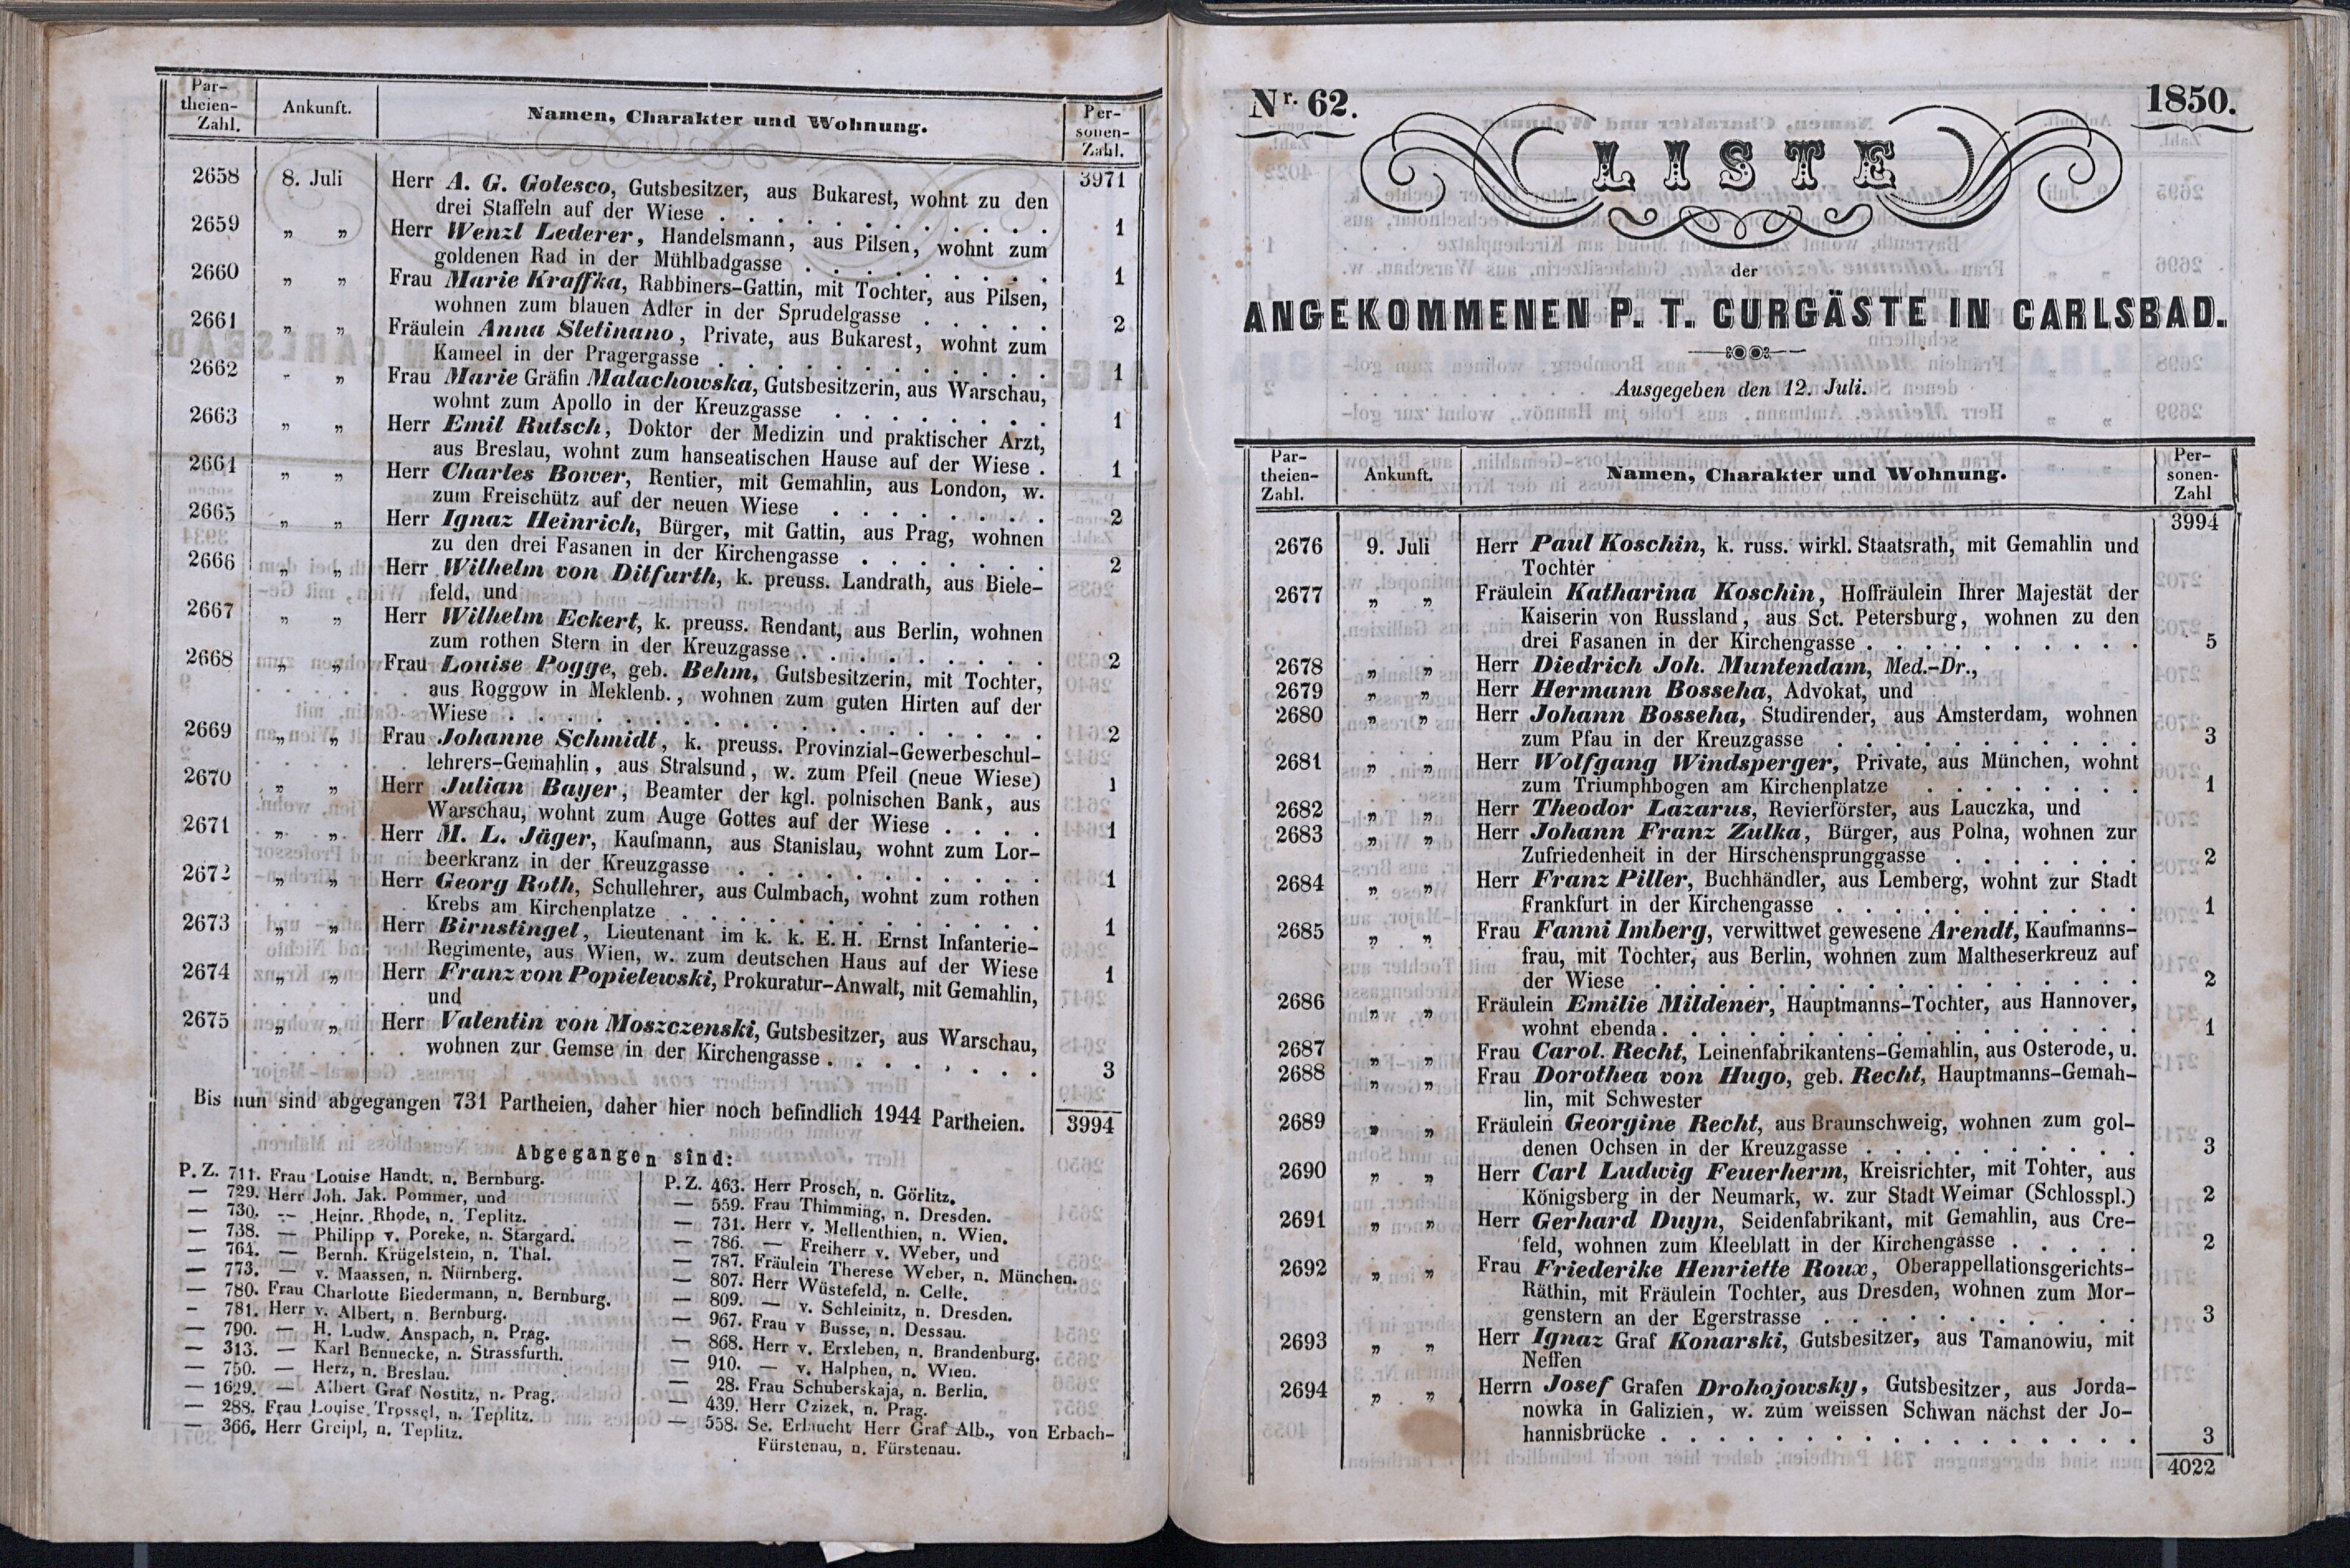 Par-
theien-
Zahl.
Ankunft.
Namen, Charakter und Wohnung.
Per-
sonen-
Zahl.
3971
2658 8. Juli Herr A. G. Golesco, Gutsbesitzer, aus Bukarest, wohnt zu den
drei Staffeln auf der Wiese . . . . . . . . . . 1
2659 „ „ Herr Wenzl Lederer, Handelsmann, aus Pilsen, wohnt zum
goldenen Rad in der Mühlbadgasse . . . . . . . 1
2660 „ „ Frau Marie Kraffka, Rabbiners-Gattin, mit Tochter, aus Pilsen,
wohnen zum blauen Adler in der Sprudelgasse . . . . . 2
2661 „ „ Fräulein Anna Sletinano, Private, aus Bukarest, wohnt zum
Kameel in der Pragergasse . . . . . . . . . . 1
2662 „ „ Frau Marie Gräfin Malachowska, Gutsbesitzerin, aus Warschau,
wohnt zum Apollo in der Kreuzgasse . . . . . . . 1
2663 „ „ Herr Emil Rutsch, Doktor der Medizin und praktischer Arzt,
aus Breslau, wohnt zum hanseatischen Hause auf der Wiese . 1
2664 „ „ Herr Charles Bower, Rentier, mit Gemahlin, aus London, w.
zum Freischütz auf der neuen Wiese . . . . . . . 2
2665 „ „ Herr Ignaz Heinrich, Bürger, mit Gattin, aus Prag, wohnen
zu den drei Fasanen in der Kirchengasse . . . . . . 2
2666 „ „ Herr Wilhelm von Ditfurth, k. preuss. Landrath, aus Biele-
feld, und
2667 „ „ Herr Wilhelm Eckert, k. preuss. Rendant, aus Berlin, wohnen
zum rothen Stern in der Kreuzgasse . . . . . . . . 2
2668 „ „ Frau Louise Pogge, geb. Behm, Gutsbesitzerin, mit Tochter,
aus Roggow in Meklenb., wohnen zum guten Hirten auf der
Wiese . . . . . . . . . . . . . . . 2
2669 „ „ Frau Johanne Schmidt, k. preuss. Provinzial-Gewerbeschul-
lehrers-Gemahlin, aus Stralsund, w. zum Pfeil (neue Wiese) 1
2670 „ „ Herr Julian Bayer, Beamter der kgl. polnischen Bank, aus
Warschau, wohnt zum Auge Gottes auf der Wiese . . . . 1
2671 „ „ Herr M. L. Jäger, Kaufmann, aus Stanislau, wohnt zum Lor-
beerkranz in der Kreuzgasse . . . . . . . . . 1
2672 „ „ Herr Georg Roth, Schullehrer, aus Culmbach, wohnt zum rothen
Krebs am Kirchenplatze . . . . . . . . . . . 1
2673 „ „ Herr Birnstingel, Lieutenant im k. k. E. H. Ernst Infanterie-
Regimente, aus Wien, w. zum deutschen Haus auf der Wiese 1
2674 „ „ Herr Franz von Popielewski, Prokuratur-Anwalt, mit Gemahlin,
und
2675 „ „ Herr Valentin von Moszczenski, Gutsbesitzer, aus Warschau,
wohnen zur Gemse in der Kirchengasse . . . . . . . 3
Bis nun sind abgegangen 731 Partheien, daher hier noch befindlich 1944 Partheien. 3994
Abgegangen sind:
P. Z. 711. Frau Louise Handt, n. Bernburg.
— 729. Herr Joh. Jak. Pommer, und
— 730. — Heinr. Rhode, n. Teplitz.
— 738. — Philipp v. Poreke, n. Stargard.
— 764. — Bernh. Krügelstein, n. Thal.
— 773. — v. Maassen, n. Nürnberg.
— 780. Frau Charlotte Biedermann, n. Bernburg.
— 781. Herr v. Albert, n. Bernburg.
— 790. — H. Ludw. Anspach, n. Prag.
— 313. — Karl Bennecke, n. Strassfurth.
— 750. — Herz, n. Breslau.
— 1629. — Albert Graf Nostitz, n. Prag.
— 288. Frau Louise Trossel, n. Teplitz.
— 366. Herr Greipl, n. Teplitz.
P. Z. 463. Herr Prosch, n. Görlitz.
— 559. Frau Thimming, n. Dresden.
— 731. Herr v. Mellenthien, n. Wien.
— 786. — Freiherr v. Weber, und
— 787. Fräulein Therese Weber, n. München.
— 807. Herr Wüstefeld, n. Celle.
— 809. — v. Schleinitz, n. Dresden.
— 967. Frau v Busse, n. Dessau.
— 868. Herr v. Erxleben, n. Brandenburg.
— 910. — v. Halphen, n. Wien.
— 28. Frau Schuberskaja, n. Berlin.
— 439. Herr Czizek, n. Prag.
— 558. Se. Erlaucht Herr Graf Alb., von Erbach-
Fürstenau, n. Fürstenau.
Nr. 62. 1850.
LISTE
der
ANGEKOMMENEN P. T. CURGÄSTE IN CARLSBAD.
Ausgegeben den 12. Juli.
Par-
theien-
Zahl.
Ankunft.
Namen, Charakter und Wohnung.
Per-
sonen-
Zahl
3994
2676 9. Juli Herr Paul Koschin, k. russ. wirkl. Staatsrath, mit Gemahlin und
Tochter
2677 „ „ Fräulein Katharina Koschin, Hoffräulein Ihrer Majestät der
Kaiserin von Russland, aus Sct. Petersburg, wohnen zu den
drei Fasanen in der Kirchengasse . . . . . . . . . 5
2678 „ „ Herr Diedrich Joh. Muntendam, Med.-Dr.,
2679 „ „ Herr Hermann Bosseha, Advokat, und
2680 „ „ Herr Johann Bosseha, Studirender, aus Amsterdam, wohnen
zum Pfau in der Kreuzgasse . . . . . . . . . . 3
2681 „ „ Herr Wolfgang Windsperger, Private, aus München, wohnt
zum Triumphbogen am Kirchenplatze . . . . . . . 1
2682 „ „ Herr Theodor Lazarus, Revierförster, aus Lauczka, und
2683 „ „ Herr Johann Franz Zulka, Bürger, aus Polna, wohnen zur
Zufriedenheit in der Hirschensprunggasse . . . . . . 2
2684 „ „ Herr Franz Piller, Buchhändler, aus Lemberg, wohnt zur Stadt
Frankfurt in der Kirchengasse . . . . . . . . . . 1
2685 „ „ Frau Fanni Imberg, verwittwet gewesene Arendt, Kaufmanns-
frau, mit Tochter, aus Berlin, wohnen zum Maltheserkreuz auf
der Wiese . . . . . . . . . . . . . . . 2
2686 „ „ Fräulein Emilie Mildener, Hauptmanns-Tochter, aus Hannover,
wohnt ebenda . . . . . . . . . . . . . . . 1
2687 „ „ Frau Carol. Recht, Leinenfabrikantens-Gemahlin, aus Osterode, u.
2688 „ „ Frau Dorothea von Hugo, geb. Recht, Hauptmanns-Gemah-
lin, mit Schwester
2689 „ „ Fräulein Georgine Recht, aus Braunschweig, wohnen zum gol-
denen Ochsen in der Kreuzgasse . . . . . . . . . 3
2690 „ „ Herr Carl Ludwig Feuerherm, Kreisrichter, mit Tohter, aus
Königsberg in der Neumark, w. zur Stadt Weimar (Schlosspl.) 2
2691 „ „ Herr Gerhard Duyn, Seidenfabrikant, mit Gemahlin, aus Cre-
feld, wohnen zum Kleeblatt in der Kirchengasse . . . . . 2
2692 „ „ Frau Friederike Henriette Roux, Oberappellationsgerichts-
Räthin, mit Fräulein Tochter, aus Dresden, wohnen zum Mor-
genstern an der Egerstrasse . . . . . . . . . . 3
2693 „ „ Herr Ignaz Graf Konarski, Gutsbesitzer, aus Tamanowiu, mit
Neffen
2694 „ „ Herrn Josef Grafen Drohojowsky, Gutsbesitzer, aus Jorda-
nowka in Galizien, w. zum weissen Schwan nächst der Jo-
hannisbrücke . . . . . . . . . . . . . . . 3
4022